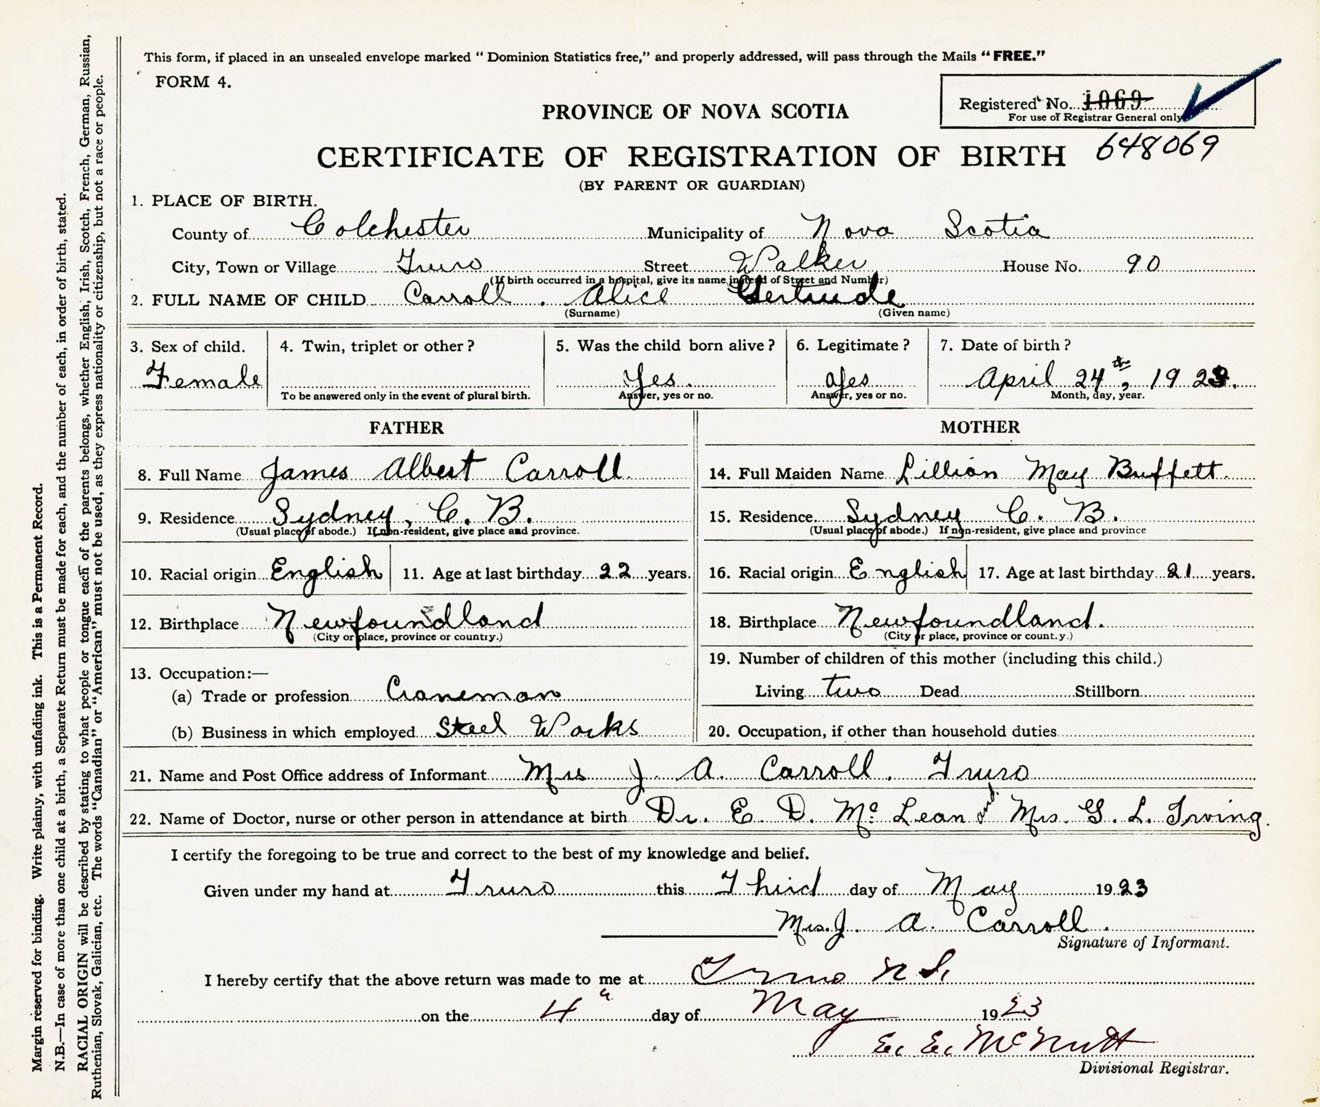 This form, if placed in an unsealed envelope marked “ Dominion Statistics free,” and properly addressed, will pass through the Mails “ FREE.”
FORM 4.
Registered No. 1069
For use of Registrar General only
648069
PROVINCE OF NOVA SCOTIA
CERTIFICATE OF REGISTRATION OF BIRTH
(BY PARENT OR GUARDIAN)
1. PLACE OF BIRTH.
County of Colchester Municipality of Nova Scotia
City, Town or Village Truro Street Walker House No. 90
(If birth occurred in a hospital, give its name instead of Street and Number)
2. FULL NAME OF CHILD Carroll . Alice Gertrude
(Surname) (Given name)
3. Sex of child. 4. Twin, triplet or other ? 5. Was the child born alive ? 6. Legitimate ? 7. Date of birth ?
Female Yes. Yes April 24th, 1923.
To be answered only in the event of plural birth. Answer, yes or no. Answer, yes or no. Month, day, year.
FATHER MOTHER
8. Full Name James Albert Carroll. 14. Full Maiden Name Lillian May Buffett.
9. Residence Sydney, C. B. 15. Residence Sydney C. B.
(Usual place of abode.) If non-resident, give place and province. (Usual place of abode.) If non-resident, give place and province
10. Racial origin English 11. Age at last birthday 22 years. 16. Racial origin English 17. Age at last birthday 21 years.
12. Birthplace Newfoundland 18. Birthplace Newfoundland.
(City or place, province or country.) (City or place, province or country.)
19. Number of children of this mother (including this child.)
13. Occupation:—
(a) Trade or profession Craneman Living two Dead Stillborn
(b) Business in which employed Steel Works 20. Occupation, if other than household duties
21. Name and Post Office address of Informant Mrs J. A. Carroll. Truro
22. Name of Doctor, nurse or other person in attendance at birth Dr. E. D. McLean and Mrs. G. L. Irving.
I certify the foregoing to be true and correct to the best of my knowledge and belief.
Given under my hand at Truro this Third day of May 1923
Mrs. J. A. Carroll.
Signature of Informant.
I hereby certify that the above return was made to me at Truro N S.
on the 4th day of May 1923
E. E. McNutt
Divisional Registrar.
Margin reserved for binding. Write plainly, with unfading ink. This is a Permanent Record.
N.B.—In case of more than one child at a birth, a Separate Return must be made for each, and the number of each, in order of birth, stated.
RACIAL ORIGIN will be described by stating to what people or tongue each of the parents belongs, whether English, Irish, Scotch, French, German, Russian,
Ruthenian, Slovak, Galician, etc. The words “Canadian” or “American” must not be used, as they express nationality or citizenship, but not a race or people.